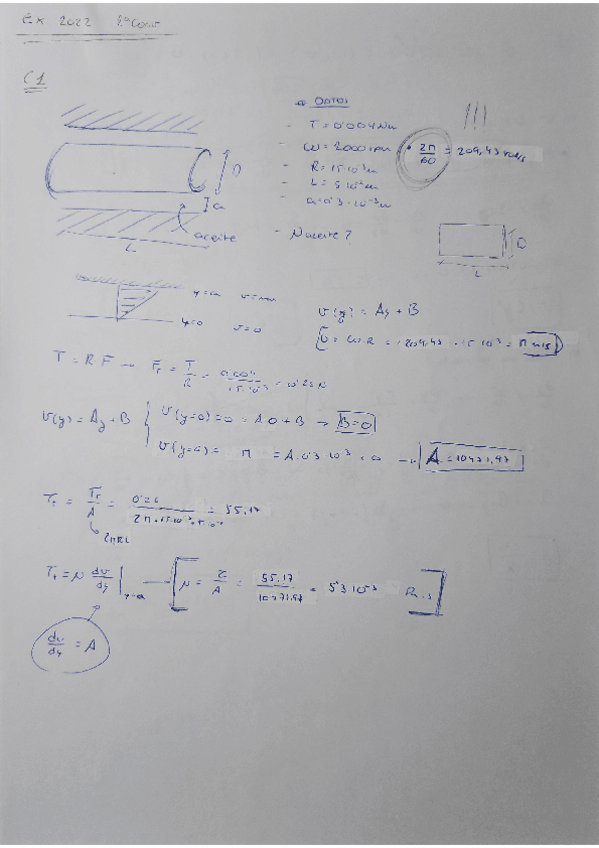 Ex 2022
C1
DATOS
- T = 0'004 Nm
- ω = 2000 rpm · 2π/60 = 209,43 rad/s
- R = 15·10⁻³ m
- L = 5·10⁻² m
- a = 0'3·10⁻³ m
- μ aceite ?
D
a
aceite
L
D
L
y=a v=max
y=0 v=0
v(y) = Ay + B
v = ω·R = 209.43 · 15·10⁻³ = π m/s
T = R·F → Fr = T/R = 0'004/15·10⁻³ = 0'26 N
v(y) = Ay + B
v(y=0) = 0 = A·0 + B → B=0
v(y=a) = π = A·0'3·10⁻³ + 0 → A = 10471,97
= Fr/A = 0'26 = 55.17
2πRL
= μ dv/dy |y=a → [ μ = τ/A = 55.17/10471.97 = 5'3·10⁻³ Pa.s ]
dv/dy = A